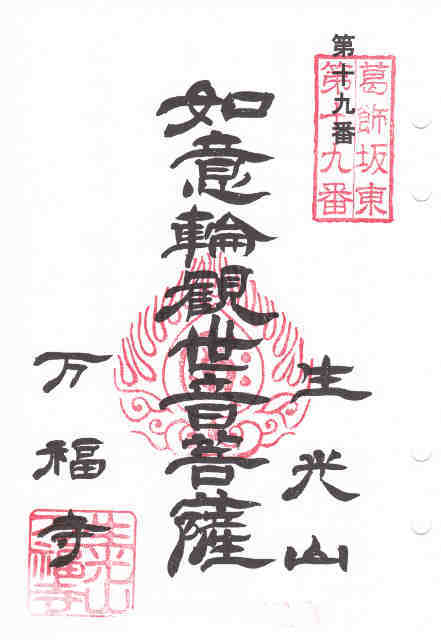 第十九番
葛飾坂東
第十九番
生光山
如意輪観世音菩薩
万福寺
生光山
万福寺